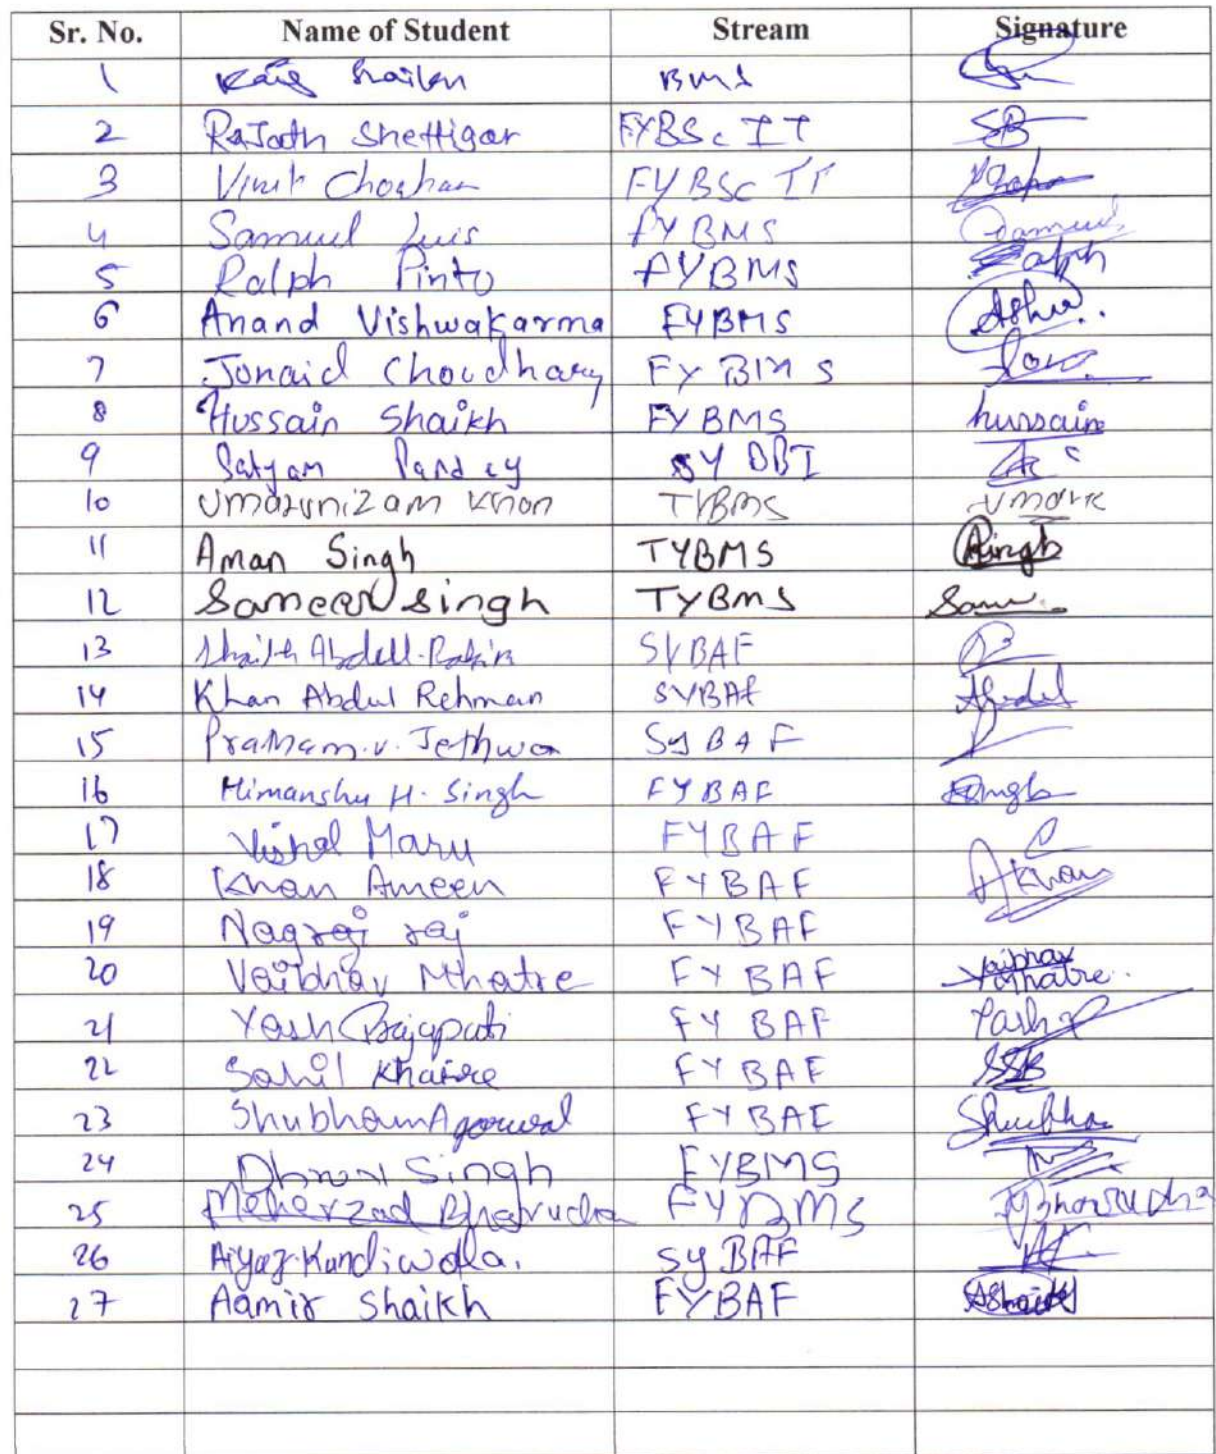 Sr. No. Name of Student Stream Signature
1 BMS
2 RaJath Shettigar FYBSc IT SB
3 Vinit Chouhan FYBSc IT
4 Samuel Luis FYBMS Samuel
5 Ralph Pinto FYBMS Ralph
6 Anand Vishwakarma FYBMS
7 Jonaid Choudhary FYBMS
8 Hussain Shaikh FYBMS hussain
9 Satyam Pandey SY BBI
10 Umarunizam Khan TYBMS
11 Aman Singh TYBMS
12 Sameer Singh TYBMS
13 Shaikh SYBAF
14 Khan Abdul Rehman SYBAF
15 Pratham.v. Jethwa SyBAF
16 Himanshu H. Singh FYBAF
17 Vishal Maru FYBAF
18 Khan Ameen FYBAF AKhan
19 Nagraj raj FYBAF
20 Vaibhav Mhatre FYBAF Vaibhav Mhatre.
21 Yash Prajapati FY BAF Yash
22 Sahil Khaire FYBAF
23 Shubham Agarwal FYBAF Shubha
24 Singh FYBMS
25 Meherzad Bharucha FYBMS
26 Aiyaz Kandiwala. Sy BAF
27 Aamir Shaikh FYBAF AShaikh